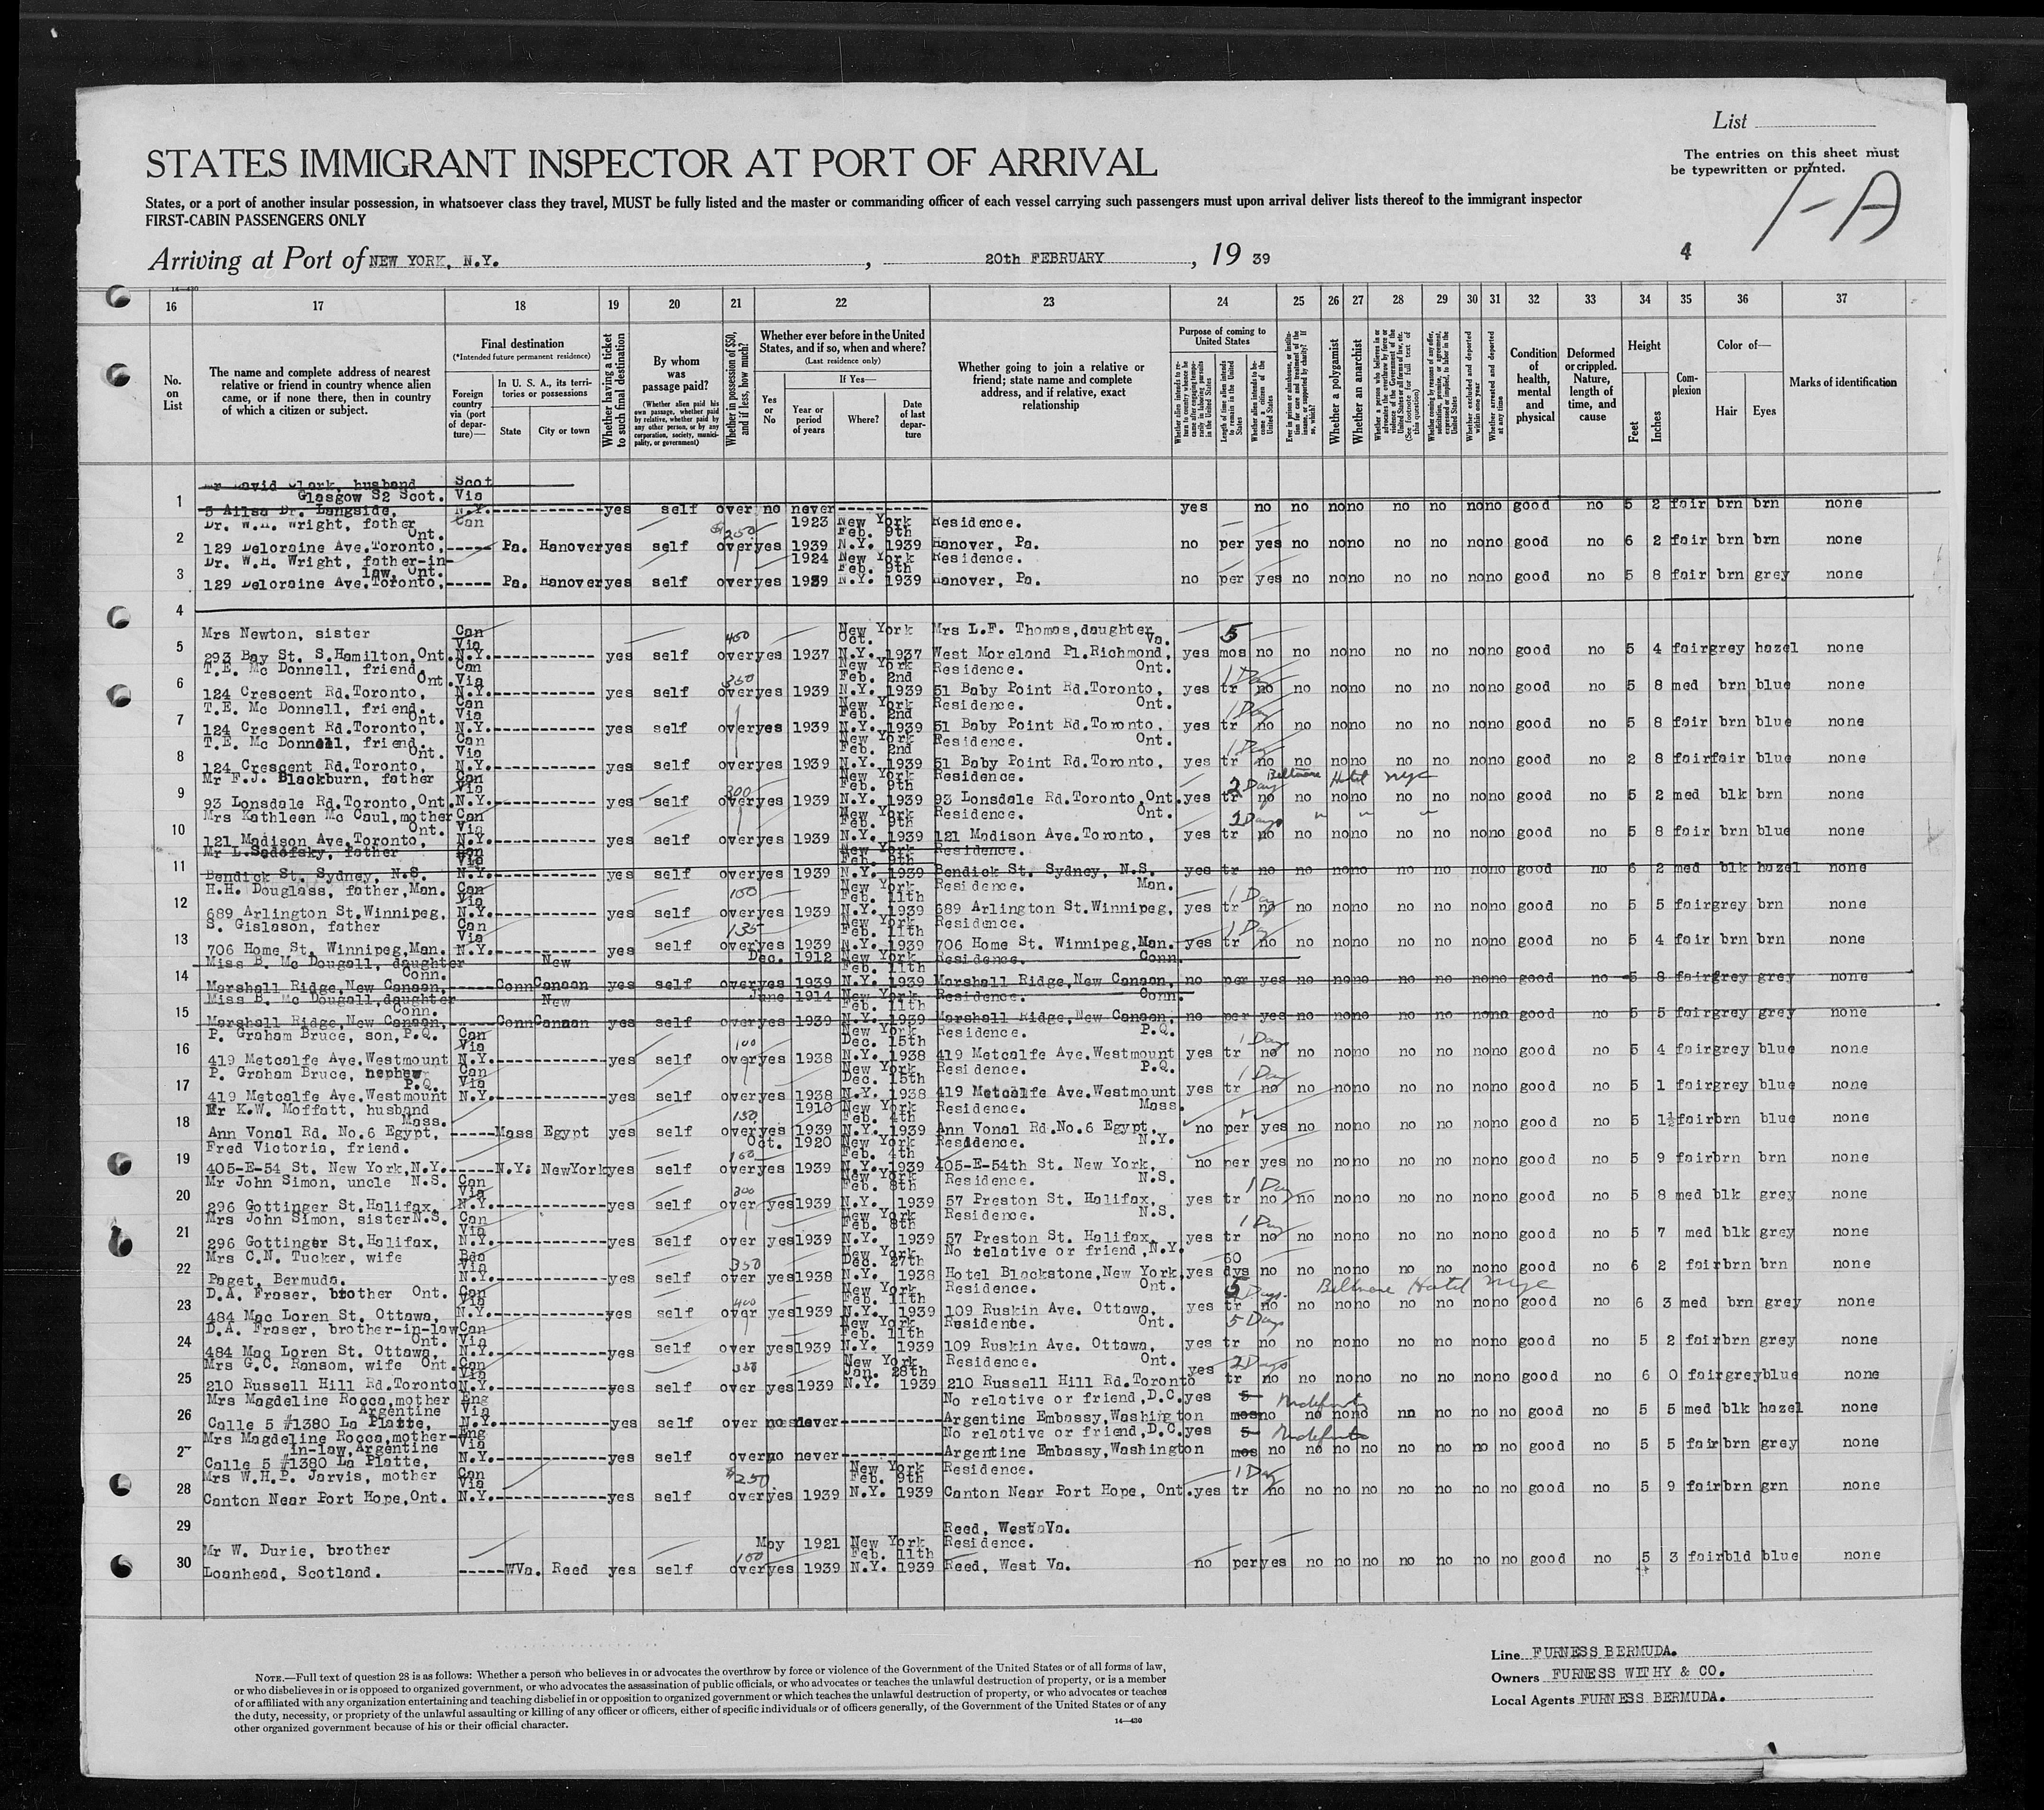 List
The entries on this sheet must
be typewritten or printed.
1-A
STATES IMMIGRANT INSPECTOR AT PORT OF ARRIVAL
States, or a port of another insular possession, in whatsoever class they travel, MUST be fully listed and the master or commanding officer of each vessel carrying such passengers must upon arrival deliver lists thereof to the immigrant inspector
FIRST-CABIN PASSENGERS ONLY
Arriving at Port of NEW YORK, N.Y. , 20th FEBRUARY , 19 39
4
14-430
16 17 18 19 20 21 22 23 24 25 26 27 28 29 30 31 32 33 34 35 36 37
No. on List
The name and complete address of nearest relative or friend in country whence alien came, or if none there, then in country of which a citizen or subject.
Final destination
(*Intended future permanent residence)
Foreign country via (port of departure)—
In U. S. A., its territories or possessions
State
City or town
Whether having a ticket to such final destination
By whom was passage paid?
(Whether alien paid his own passage, whether paid by relative, whether paid by any other person, or by any corporation, society, municipality, or government)
Whether in possession of $50, and if less, how much?
Whether ever before in the United States, and if so, when and where?
(Last residence only)
Yes or No
If Yes—
Year or period of years
Where?
Date of last departure
Whether going to join a relative or friend; state name and complete address, and if relative, exact relationship
Purpose of coming to United States
Whether alien intends to return to country whence he came after engaging temporarily in laboring pursuits in the United States
Length of time alien intends to remain in the United States
Whether alien intends to become a citizen of the United States
Ever in prison or almshouse, or institution for care and treatment of the insane, or supported by charity? If so, which?
Whether a polygamist
Whether an anarchist
Whether a person who believes in or advocates the overthrow by force or violence of the Government of the United States or all forms of law, etc. (See footnote for full text of this question)
Whether coming by reasons of any offer, solicitation, promise, or agreement, expressed or implied, to labor in the United States
Whether excluded and deported within one year
Whether arrested and deported at any time
Condition of health, mental and physical
Deformed or crippled. Nature, length of time, and cause
Height
Feet
Inches
Complexion
Color of—
Hair
Eyes
Marks of identification
Mr David Clark, husband Scot
Glasgow S2 Scot. Via
1 5 Ailsa Dr. Langside, N.Y. yes self over no never yes no no no no no no no no good no 5 2 fair brn brn none
Dr. W.H. Wright, father Can 1923 New York Residence.
Ont. 250 Feb. 9th
2 129 Deloraine Ave.Toronto, Pa. Hanover yes self over yes 1939 N.Y. 1939 Hanover, Pa. no per yes no no no no no no no good no 6 2 fair brn brn none
Dr. W.H. Wright, father-in- 1924 New York Residence.
law, Ont. Feb. 9th
3 129 Deloraine Ave.Toronto, Pa. Hanover yes self over yes 1939 N.Y. 1939 Hanover, Pa. no per yes no no no no no no no good no 5 8 fair brn grey none
4
Mrs Newton, sister Can 400 New York Mrs L.F. Thomas, daughter 5
Via Oct. Va.
5 293 Bay St. S.Hamilton,Ont. N.Y. yes self over yes 1937 N.Y. 1937 West Moreland Pl.Richmond, yes mos no no no no no no no no good no 5 4 fair grey hazel none
T.E. Mc Donnell, friend. Can New York Residence. Ont.
Ont. Via 350 Feb. 2nd 1 Day
6 124 Crescent Rd.Toronto, N.Y. yes self over yes 1939 N.Y. 1939 51 Baby Point Rd.Toronto, yes tr no no no no no no no no good no 5 8 med brn blue none
T.E. Mc Donnell, friend. Can New York Residence. Ont.
Ont. Via Feb. 2nd 1 Day
7 124 Crescent Rd.Toronto, N.Y. yes self over yes 1939 N.Y. 1939 51 Baby Point Rd.Toronto, yes tr no no no no no no no no good no 5 8 fair brn blue none
T.E. Mc Donnell, friend Can New York Residence. Ont.
Ont. Via Feb. 2nd 1 Day
8 124 Crescent Rd.Toronto, N.Y. yes self over yes 1939 N.Y. 1939 51 Baby Point Rd.Toronto, yes tr no no no no no no no no good no 2 8 fair fair blue none
Mr F.J. Blackburn, father Can New York Residence. Biltmore Hotel NYC
Via 300 Feb. 9th 2 Day
9 93 Lonsdale Rd.Toronto,Ont. N.Y. yes self over yes 1939 N.Y. 1939 93 Lonsdale Rd.Toronto,Ont. yes tr no no no no no no no no good no 5 2 med blk brn none
Mrs Kathleen Mc Caul,mother Can New York Residence. Ont.
Ont. Via Feb. 9th 2 Days " " "
10 121 Madison Ave.Toronto, N.Y. yes self over yes 1939 N.Y. 1939 121 Madison Ave.Toronto, yes tr no no no no no no no no good no 5 8 fair brn blue none
Mr L.Sadofsky, father Can New York Residence.
Via Feb. 9th
11 Bendick St. Sydney, N.S. N.Y. yes self over yes 1939 N.Y. 1939 Bendick St. Sydney, N.S. yes tr no no no no no no no no good no 6 2 med blk hazel none
H.H. Douglass, father,Man. Can New York Residence. Man.
Via 100 Feb. 11th 1 Day
12 689 Arlington St.Winnipeg, N.Y. yes self over yes 1939 N.Y. 1939 689 Arlington St.Winnipeg, yes tr no no no no no no no no good no 5 5 fair grey brn none
S. Gislason, father Can New York Residence.
Via 135 Feb. 11th 1 Day
13 706 Home St. Winnipeg,Man. N.Y. yes self over yes 1939 N.Y. 1939 706 Home St. Winnipeg,Man. yes tr no no no no no no no no good no 5 4 fair brn brn none
Miss B. Mc Dougall, daughter New Dec. 1912 New York Residence. Conn.
Conn. Feb. 11th
14 Marshall Ridge,New Canaan, Conn Canaan yes self over yes 1939 N.Y. 1939 Marshall Ridge,New Canaan, no per yes no no no no no no no good no 5 8 fair grey grey none
Miss B. Mc Dougall,daughter New June 1914 New York Residence. Conn.
Conn. Feb. 11th
15 Marshall Ridge,New Canaan, Conn Canaan yes self over yes 1939 N.Y. 1939 Marshall Ridge,New Canaan, no per yes no no no no no no no good no 5 5 fair grey grey none
P. Graham Bruce, son,P.Q. Can New York Residence. P.Q.
Via 100 Dec. 15th 1 Day
16 419 Metcalfe Ave.Westmount N.Y. yes self over yes 1938 N.Y. 1938 419 Metcalfe Ave.Westmount yes tr no no no no no no no no good no 5 4 fair grey blue none
P. Graham Bruce, nephew Can New York Residence. P.Q.
P.Q. Via Dec. 15th 1 Day
17 419 Metcalfe Ave.Westmount N.Y. yes self over yes 1938 N.Y. 1938 419 Metcalfe Ave.Westmount yes tr no no no no no no no no good no 5 1 fair grey blue none
Mr K.W. Moffatt, husband 1910 New York Residence. Mass.
Mass. 150 Feb. 4th
18 Ann Vonal Rd. No.6 Egypt, Mass Egypt yes self over yes 1939 N.Y. 1939 Ann Vonal Rd.No.6 Egypt, no per yes no no no no no no no good no 5 1½ fair brn blue none
Fred Victoria, friend. Oct. 1920 New York Residence. N.Y.
100 Feb. 4th
19 405-E-54 St. New York,N.Y. N.Y. NewYork yes self over yes 1939 N.Y. 1939 405-E-54th St. New York, no per yes no no no no no no no good no 5 9 fair brn brn none
Mr John Simon, uncle N.S. Can New York Residence. N.S.
Via 300 Feb. 8th 1 Day
20 296 Gottinger St.Halifax, N.Y. yes self over yes 1939 N.Y. 1939 57 Preston St. Halifax, yes tr no no no no no no no no good no 5 8 med blk grey none
Mrs John Simon, sister N.S. Can New York Residence. N.S.
Via Feb. 8th 1 Day
21 296 Gottinger St.Halifax, N.Y. yes self over yes 1939 N.Y. 1939 57 Preston St. Halifax, yes tr no no no no no no no no good no 5 7 med blk grey none
Mrs C.N. Tucker, wife Bda New York No relative or friend,N.Y.
Via 350 Dec. 27th 60
22 Paget, Bermuda. N.Y. yes self over yes 1938 N.Y. 1938 Hotel Blackstone,New York, yes dys no no no no no no no no good no 6 2 fair brn brn none
D.A. Fraser, brother Ont. Can New York Residence. Ont. 5 Days. Biltmore Hotel NYC
Via 400 Feb. 11th
23 484 Mac Loren St. Ottawa, N.Y. yes self over yes 1939 N.Y. 1939 109 Ruskin Ave. Ottawa, yes tr no no no no no no no no good no 6 3 med brn grey none
D.A. Fraser, brother-in-law Can New York Residence. Ont. 5 Days
Ont. Via Feb. 11th
24 484 Mac Loren St. Ottawa, N.Y. yes self over yes 1939 N.Y. 1939 109 Ruskin Ave. Ottawa, yes tr no no no no no no no no good no 5 2 fair brn grey none
Mrs G.C. Ransom, wife Ont. Can 350 New York Residence. Ont. 2 Days
Via Jan. 28th
25 210 Russell Hill Rd.Toronto N.Y. yes self over yes 1939 N.Y. 1939 210 Russell Hill Rd.Toronto yes tr no no no no no no no no good no 6 0 fair grey blue none
Mrs Magdeline Rocca,mother Eng No relative or friend,D.C. yes 5 Indefinite
Argentine Via
26 Calle 5 #1380 La Platte, N.Y. yes self over no never Argentine Embassy,Washington mos no no no no no no no no good no 5 5 med blk hazel none
Mrs Magdeline Rocca,mother- Eng No relative or friend,D.C. yes 5 Indefinite
in-law,Argentine Via
27 Calle 5 #1380 La Platte, N.Y. yes self over no never Argentine Embassy,Washington mos no no no no no no no no good no 5 5 fair brn grey none
Mrs W.H.P. Jarvis, mother Can $250 New York Residence. 1 Day
Via Feb. 9th
28 Canton Near Port Hope,Ont. N.Y. yes self over yes 1939 N.Y. 1939 Canton Near Port Hope, Ont. yes tr no no no no no no no no good no 5 9 fair brn grn none
29 Reed, West Va.
Mr W. Durie, brother May 1921 New York Residence.
100 Feb. 11th
30 Loanhead, Scotland. WVa. Reed yes self over yes 1939 N.Y. 1939 Reed, West Va. no per yes no no no no no no no good no 5 3 fair bld blue none
NOTE.—Full text of question 28 is as follows: Whether a person who believes in or advocates the overthrow by force or violence of the Government of the United States or of all forms of law,
or who disbelieves in or is opposed to organized government, or who advocates the assassination of public officials, or who advocates or teaches the unlawful destruction of property, or is a member
of or affiliated with any organization entertaining and teaching disbelief in or opposition to organized government or which teaches the unlawful destruction of property, or who advocates or teaches
the duty, necessity, or propriety of the unlawful assaulting or killing of any officer or officers, either of specific individuals or of officers generally, of the Government of the United States or of any
other organized government because of his or their official character.
14—430
Line FURNESS BERMUDA.
Owners FURNESS WITHY & CO.
Local Agents FURNESS BERMUDA.